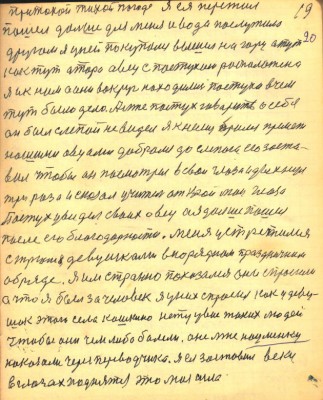 19
при такой тихой погоде Я ся перешил
пошел дальше для меня и вода послужила
другом я у ней покупался вышел на гору а тут 20
как тут отара овец с пастухом расположена
я их к ним а они вокруг находились пастуха в чем
тут было дело. А же пастух говорить о себе
он был слепой не видел я к нему пришел
нашими овцами добрался до слепого его заста-
вил чтобы он посмотрел в свои глаза двенадца
три раза и сказал учителя открой мои глаза
Пастух увидел своих овец а я дальше пошел
после его благодарности. Меня встретили
с девушками в нарядном праздничном
обряде. Я им странно показался они спросили
а что я был за человек я у них спросил как у деву-
шек этого села кошкино нету у вас таких людей
чтобы они чем либо болели, они мне на
показали через переводчика. Я заставил веки
в глазах поднятся это моя сила